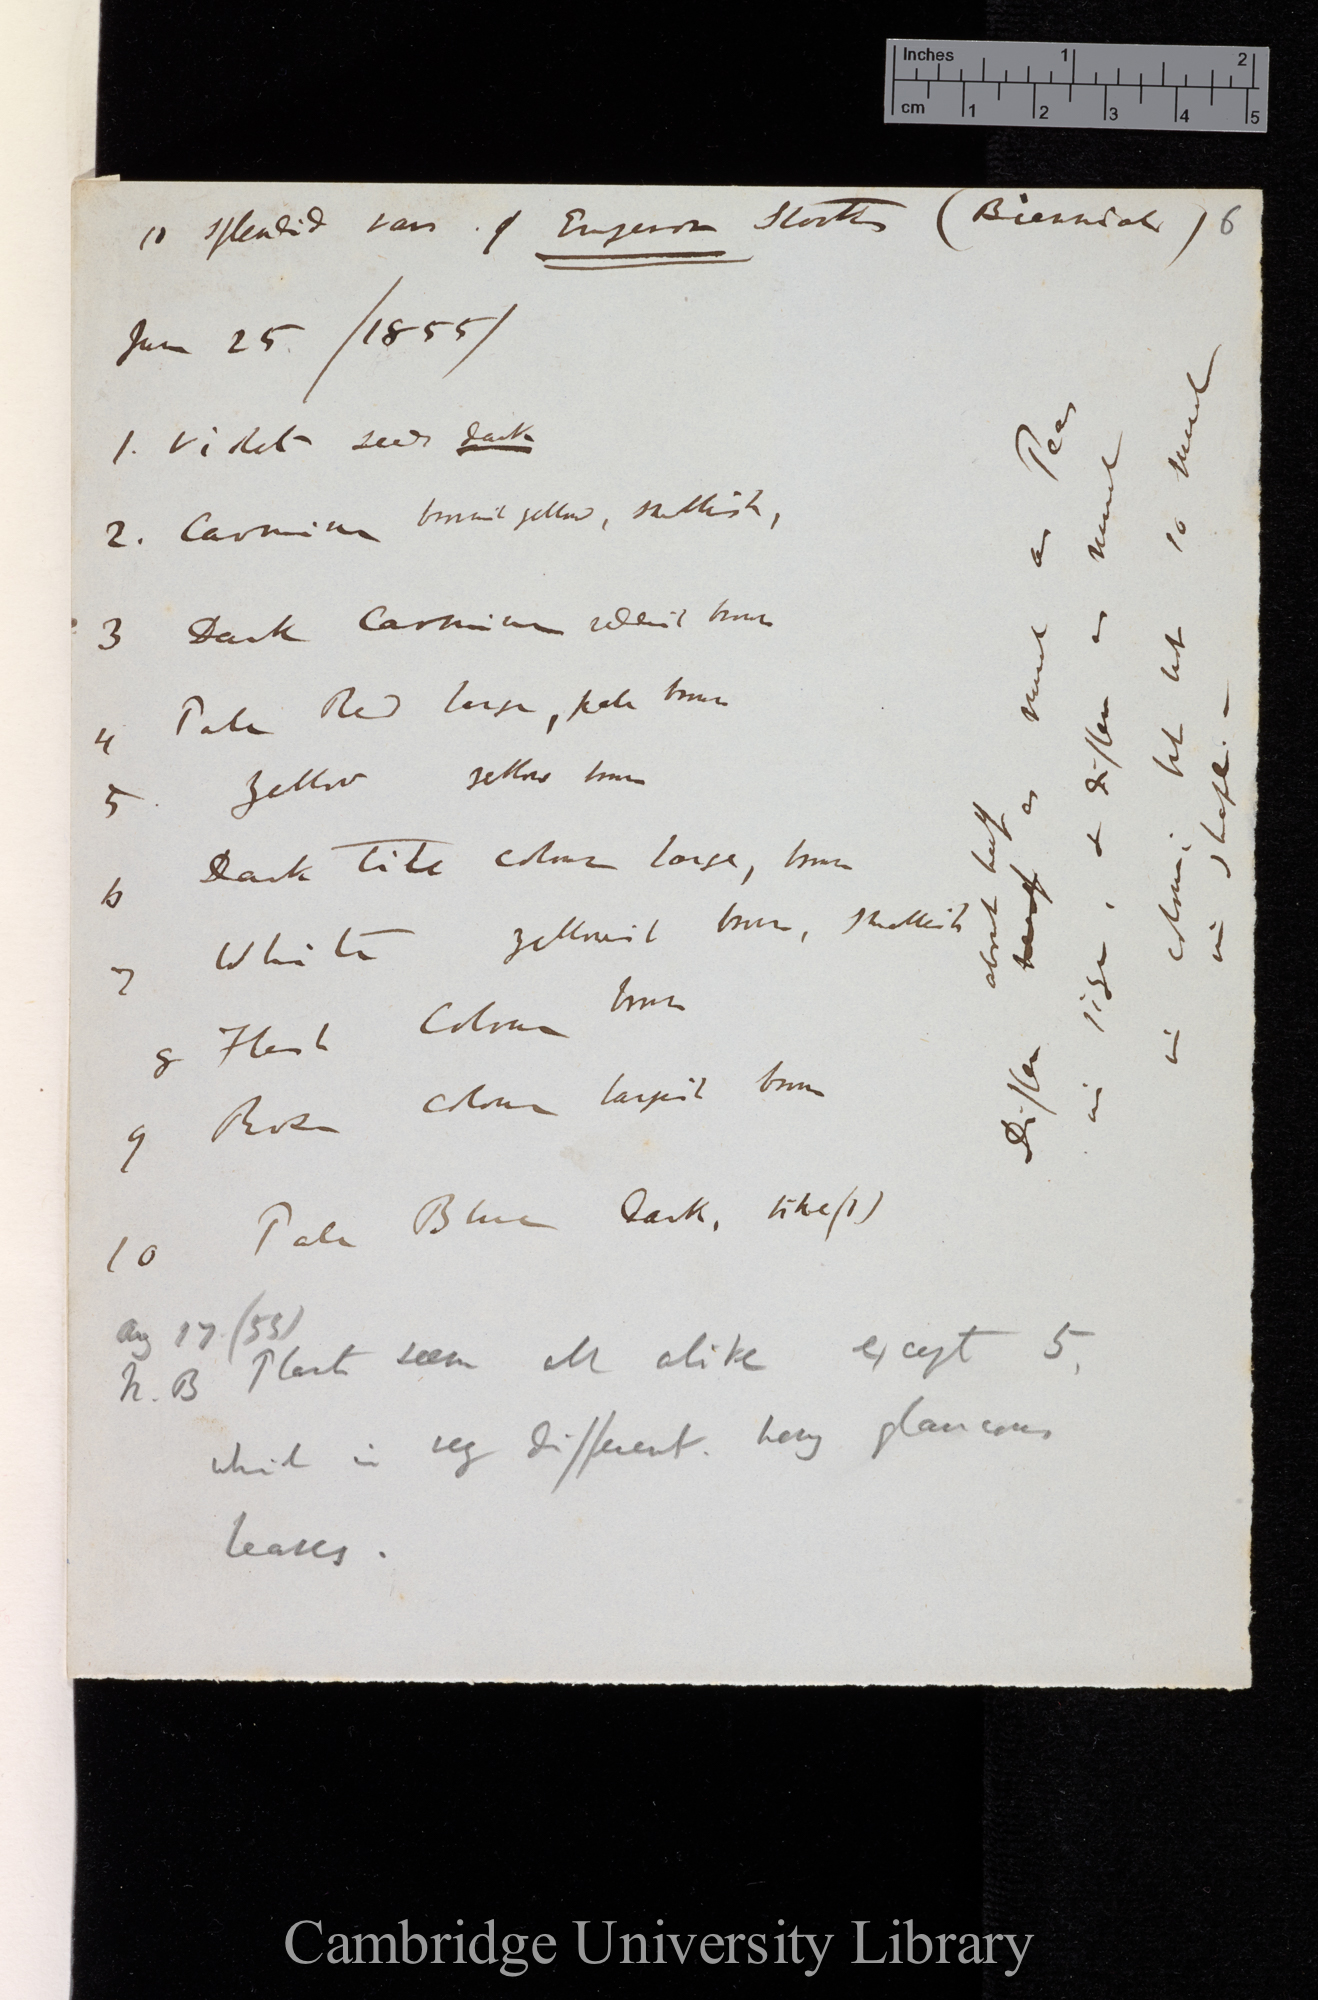 Inches 1 2
cm 1 2 3 4 5
10 splendid vars of Emperor Stocks (Biennials) 6
Jun 25 /1855/
1. Violet seeds dark
2. Carmine brownish yellow, smallish,
3 Dark Carmine reddish brown
4 Pale Red large, pale brown
5 Yellow yellow brown
6 Dark lilac colour large, brown
7 White yellowish brown, smallish
8 Flesh Colour brown
9 Rose colour largish brown
10 Pale Blue Dark, like (1)
Aug 17 (55)
N.B Plants seem all alike except 5,
which is very different. having glaucous
leaves.
about half
Differ as much as Peas
in size, & differ as much
in colour; but not so much
in shape. —
Cambridge University Library